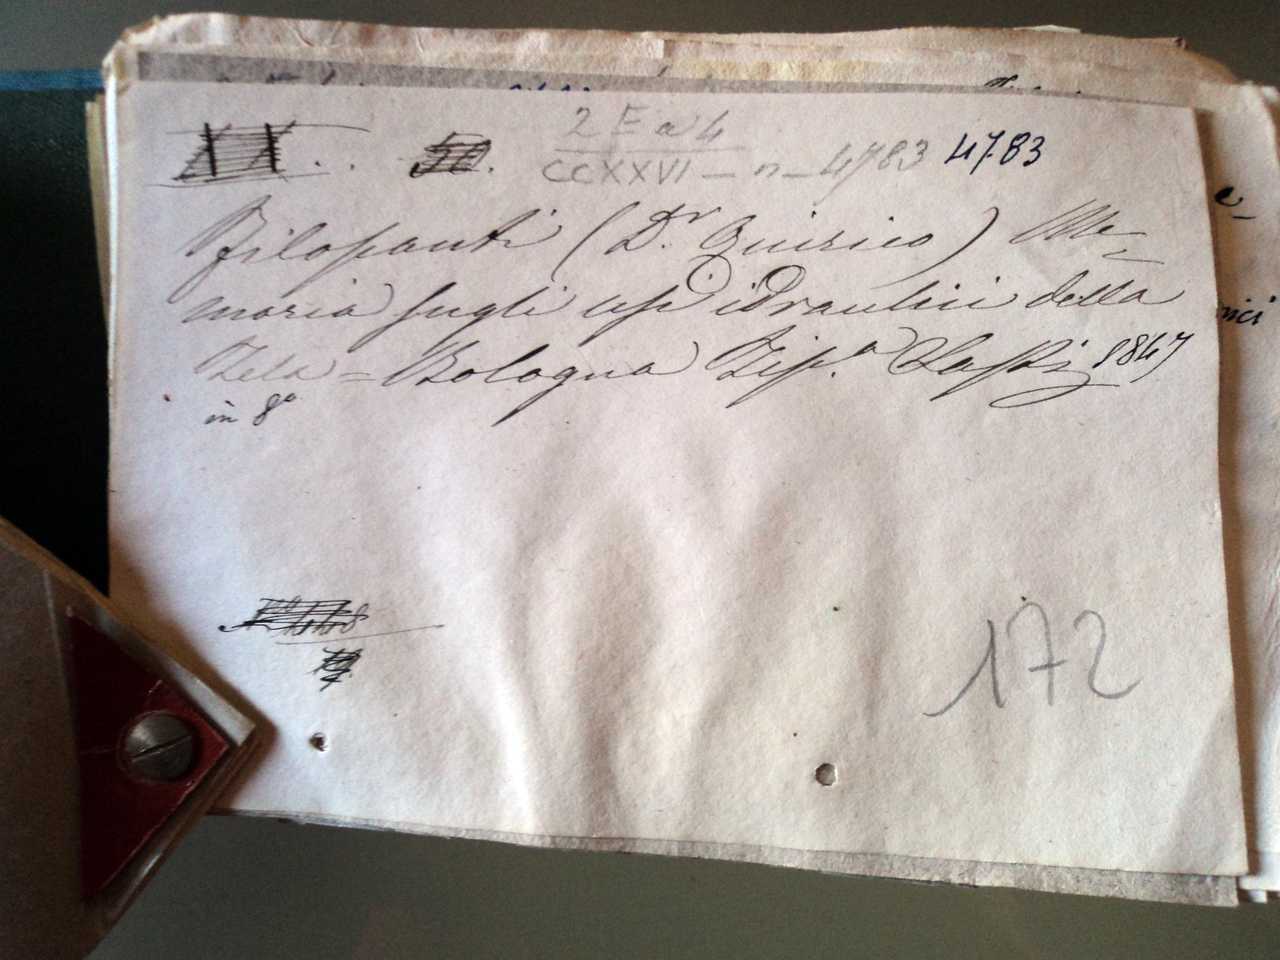 2 E a 4
CCXXVI - n - 4783 4783
Filopanti (Dr. Quirico) Me=
moria sugli usi idraulici della
Tela = Bologna Tip.a Sassi 1847
in 8o
172